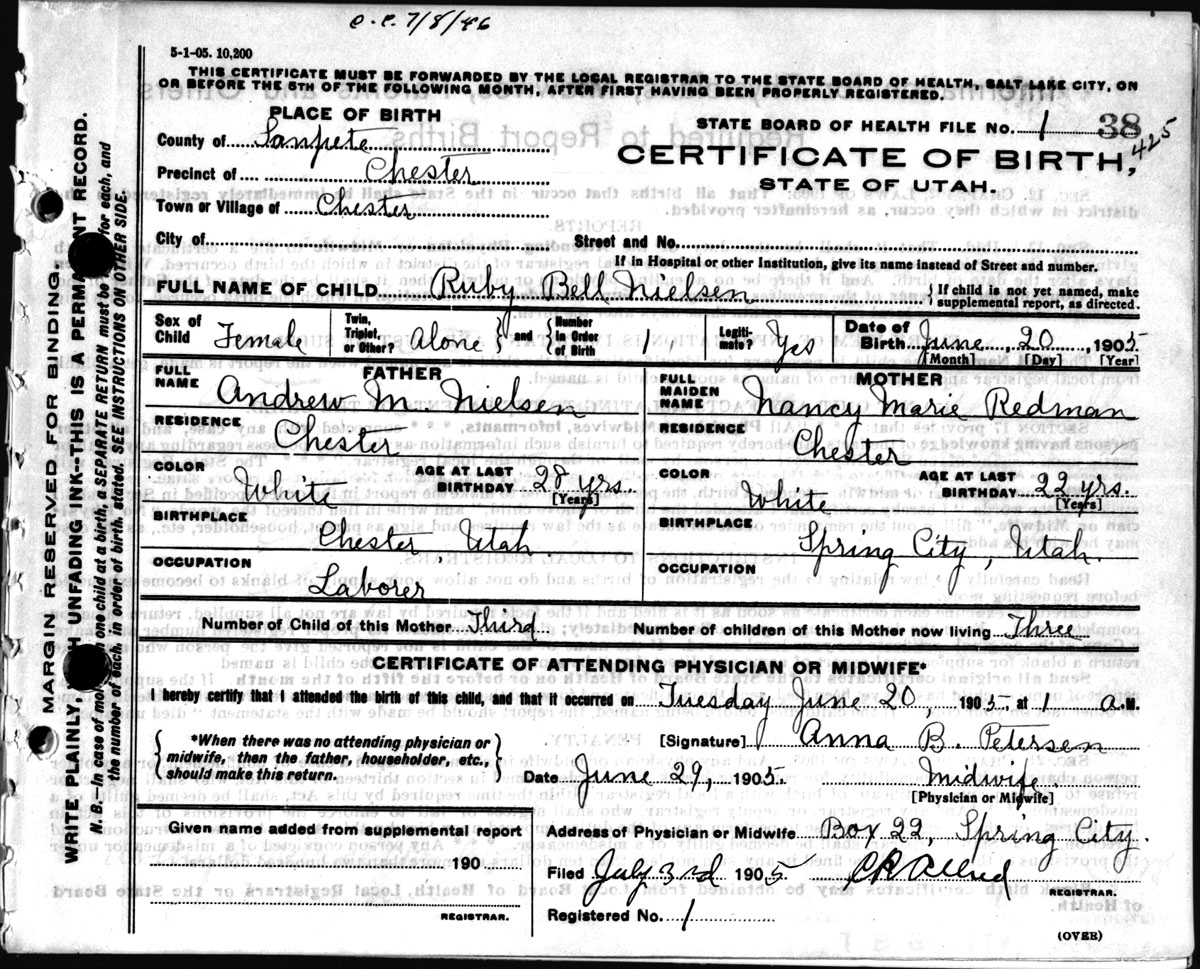 C.C. 7/8/46
5-1-05. 10,200
THIS CERTIFICATE MUST BE FORWARDED BY THE LOCAL REGISTRAR TO THE STATE BOARD OF HEALTH, SALT LAKE CITY, ON
OR BEFORE THE 5TH OF THE FOLLOWING MONTH, AFTER FIRST HAVING BEEN PROPERLY REGISTERED.
PLACE OF BIRTH
County of Sanpete
Precinct of Chester
Town or Village of Chester
STATE BOARD OF HEALTH FILE NO. 1 38
425
CERTIFICATE OF BIRTH,
STATE OF UTAH.
City of Street and No.
If in Hospital or other Institution, give its name instead of Street and number.
FULL NAME OF CHILD Ruby Bell Nielsen { If child is not yet named, make
supplemental report, as directed.
Sex of Child Female Twin, Triplet, or Other? Alone { and } Number in Order of Birth 1 Legiti- mate? Yes Date of Birth June 20, 1905
[Month] [Day] [Year]
FATHER
FULL NAME Andrew M. Nielsen
RESIDENCE Chester
COLOR White AGE AT LAST BIRTHDAY 28 yrs.
[Years]
BIRTHPLACE Chester, Utah.
OCCUPATION Laborer
MOTHER
FULL MAIDEN NAME Nancy Marie Redman
RESIDENCE Chester
COLOR White AGE AT LAST BIRTHDAY 22 yrs.
[Years]
BIRTHPLACE Spring City, Utah.
OCCUPATION
Number of Child of this Mother Third Number of children of this Mother now living Three
CERTIFICATE OF ATTENDING PHYSICIAN OR MIDWIFE*
I hereby certify that I attended the birth of this child, and that it occurred on Tuesday June 20, 1905 at 1 A.M.
{ *When there was no attending physician or
midwife, then the father, householder, etc.,
should make this return. }
[Signature] Anna B. Petersen
Date June 29, 1905. Midwife.
[Physician or Midwife]
Given name added from supplemental report
190
REGISTRAR.
Address of Physician or Midwife Box 22, Spring City.
Filed July 3rd 1905
REGISTRAR.
Registered No. 1
(OVER)
MARGIN RESERVED FOR BINDING
WRITE PLAINLY, UNFADING INK--THIS IS A RECORD.
N. B.--In case of one child at a birth, a SEPARATE RETURN must be for each, and
the number of each, in order of birth, stated. SEE INSTRUCTIONS ON OTHER SIDE.